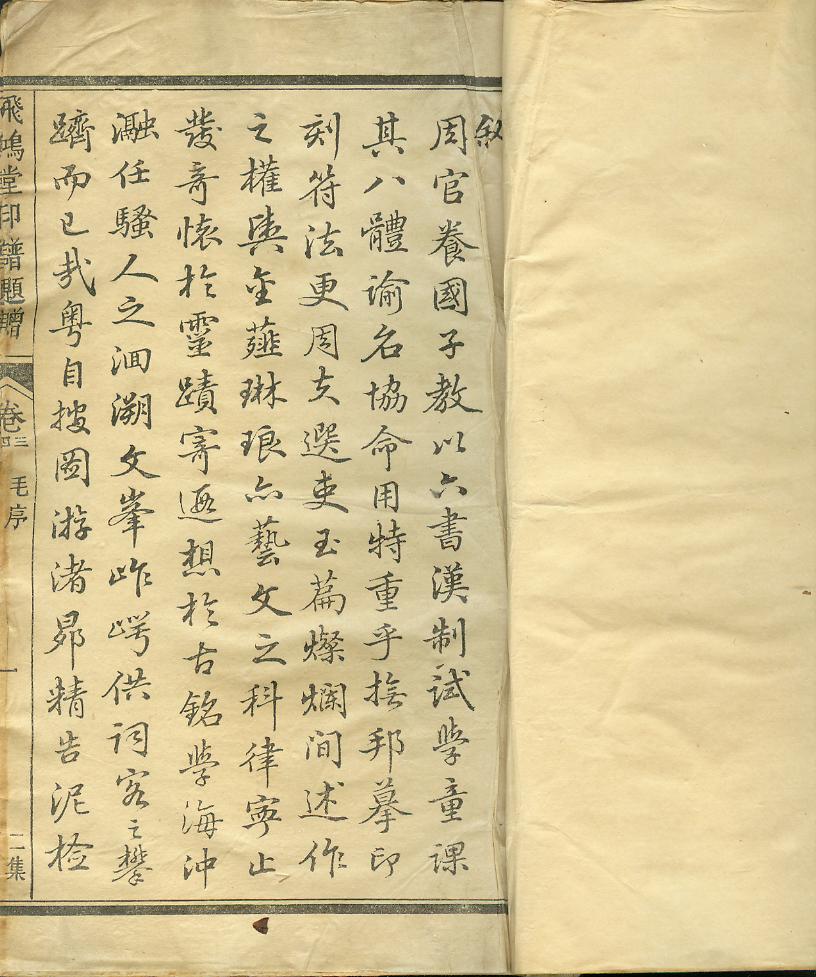 敘
周官養國子教以六書漢制試學童課
其八體諭名協命用特重乎撫邦摹印
刻符法更周於選吏玉篇燦爛間述作
之權輿金薤琳琅亦藝文之科律寧止
發奇懷於靈蹟寄遐想於古銘學海沖
瀜任騷人之洄溯文峯岝崿供詞客之攀
躋而已哉粵自披圖游渚昴精告泥檢
飛鴻堂印譜題贈
卷三四
毛序
一
二集